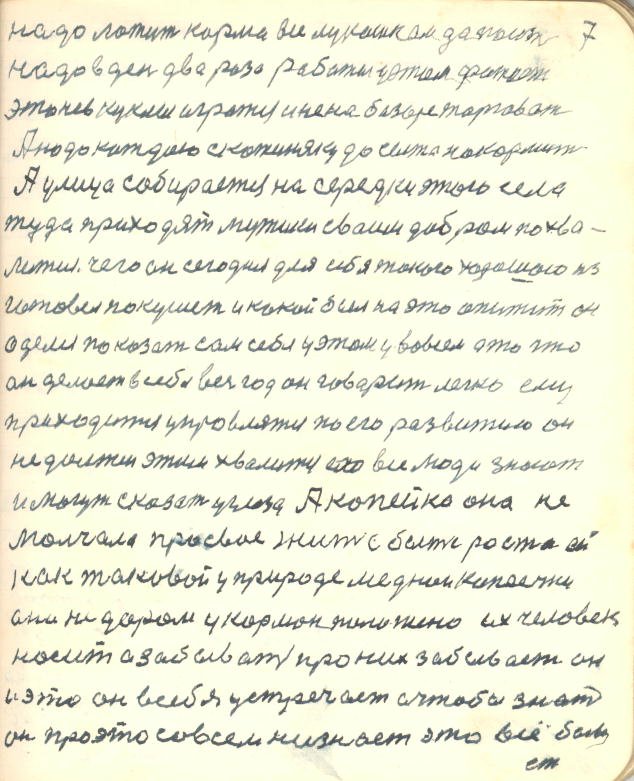 надо ложит корма вие лукошкам дапоит 7
надо в ден два раза работи у этом
это нев куклы игроти и не на базоре торговат
А надо каждою скотиняку до сыта накормит
А улица собирается на середки этого села
туда приходят мужики сваим добром похва-
литиь. чего он сегодня для себя такого хорошого из
готовел покушет и какой был на это опитит он
оделся показат сам себя у этому вовсем это что
он делоет в себя веч год он говарит легко ему
приходитиь управляти по его развитию он
не должен этим хвалитиь ево вие люди знают
и могут сказат у глаза А копейка она не
молчала просвое жити с быти роста ей
как таковой у природе медной копеечки
они не даром у кормон положено их человек
носит а забыват про них забывает он
и это он в себя устречает а чтобы знат
он про это совсем низнает это всё быв
ет